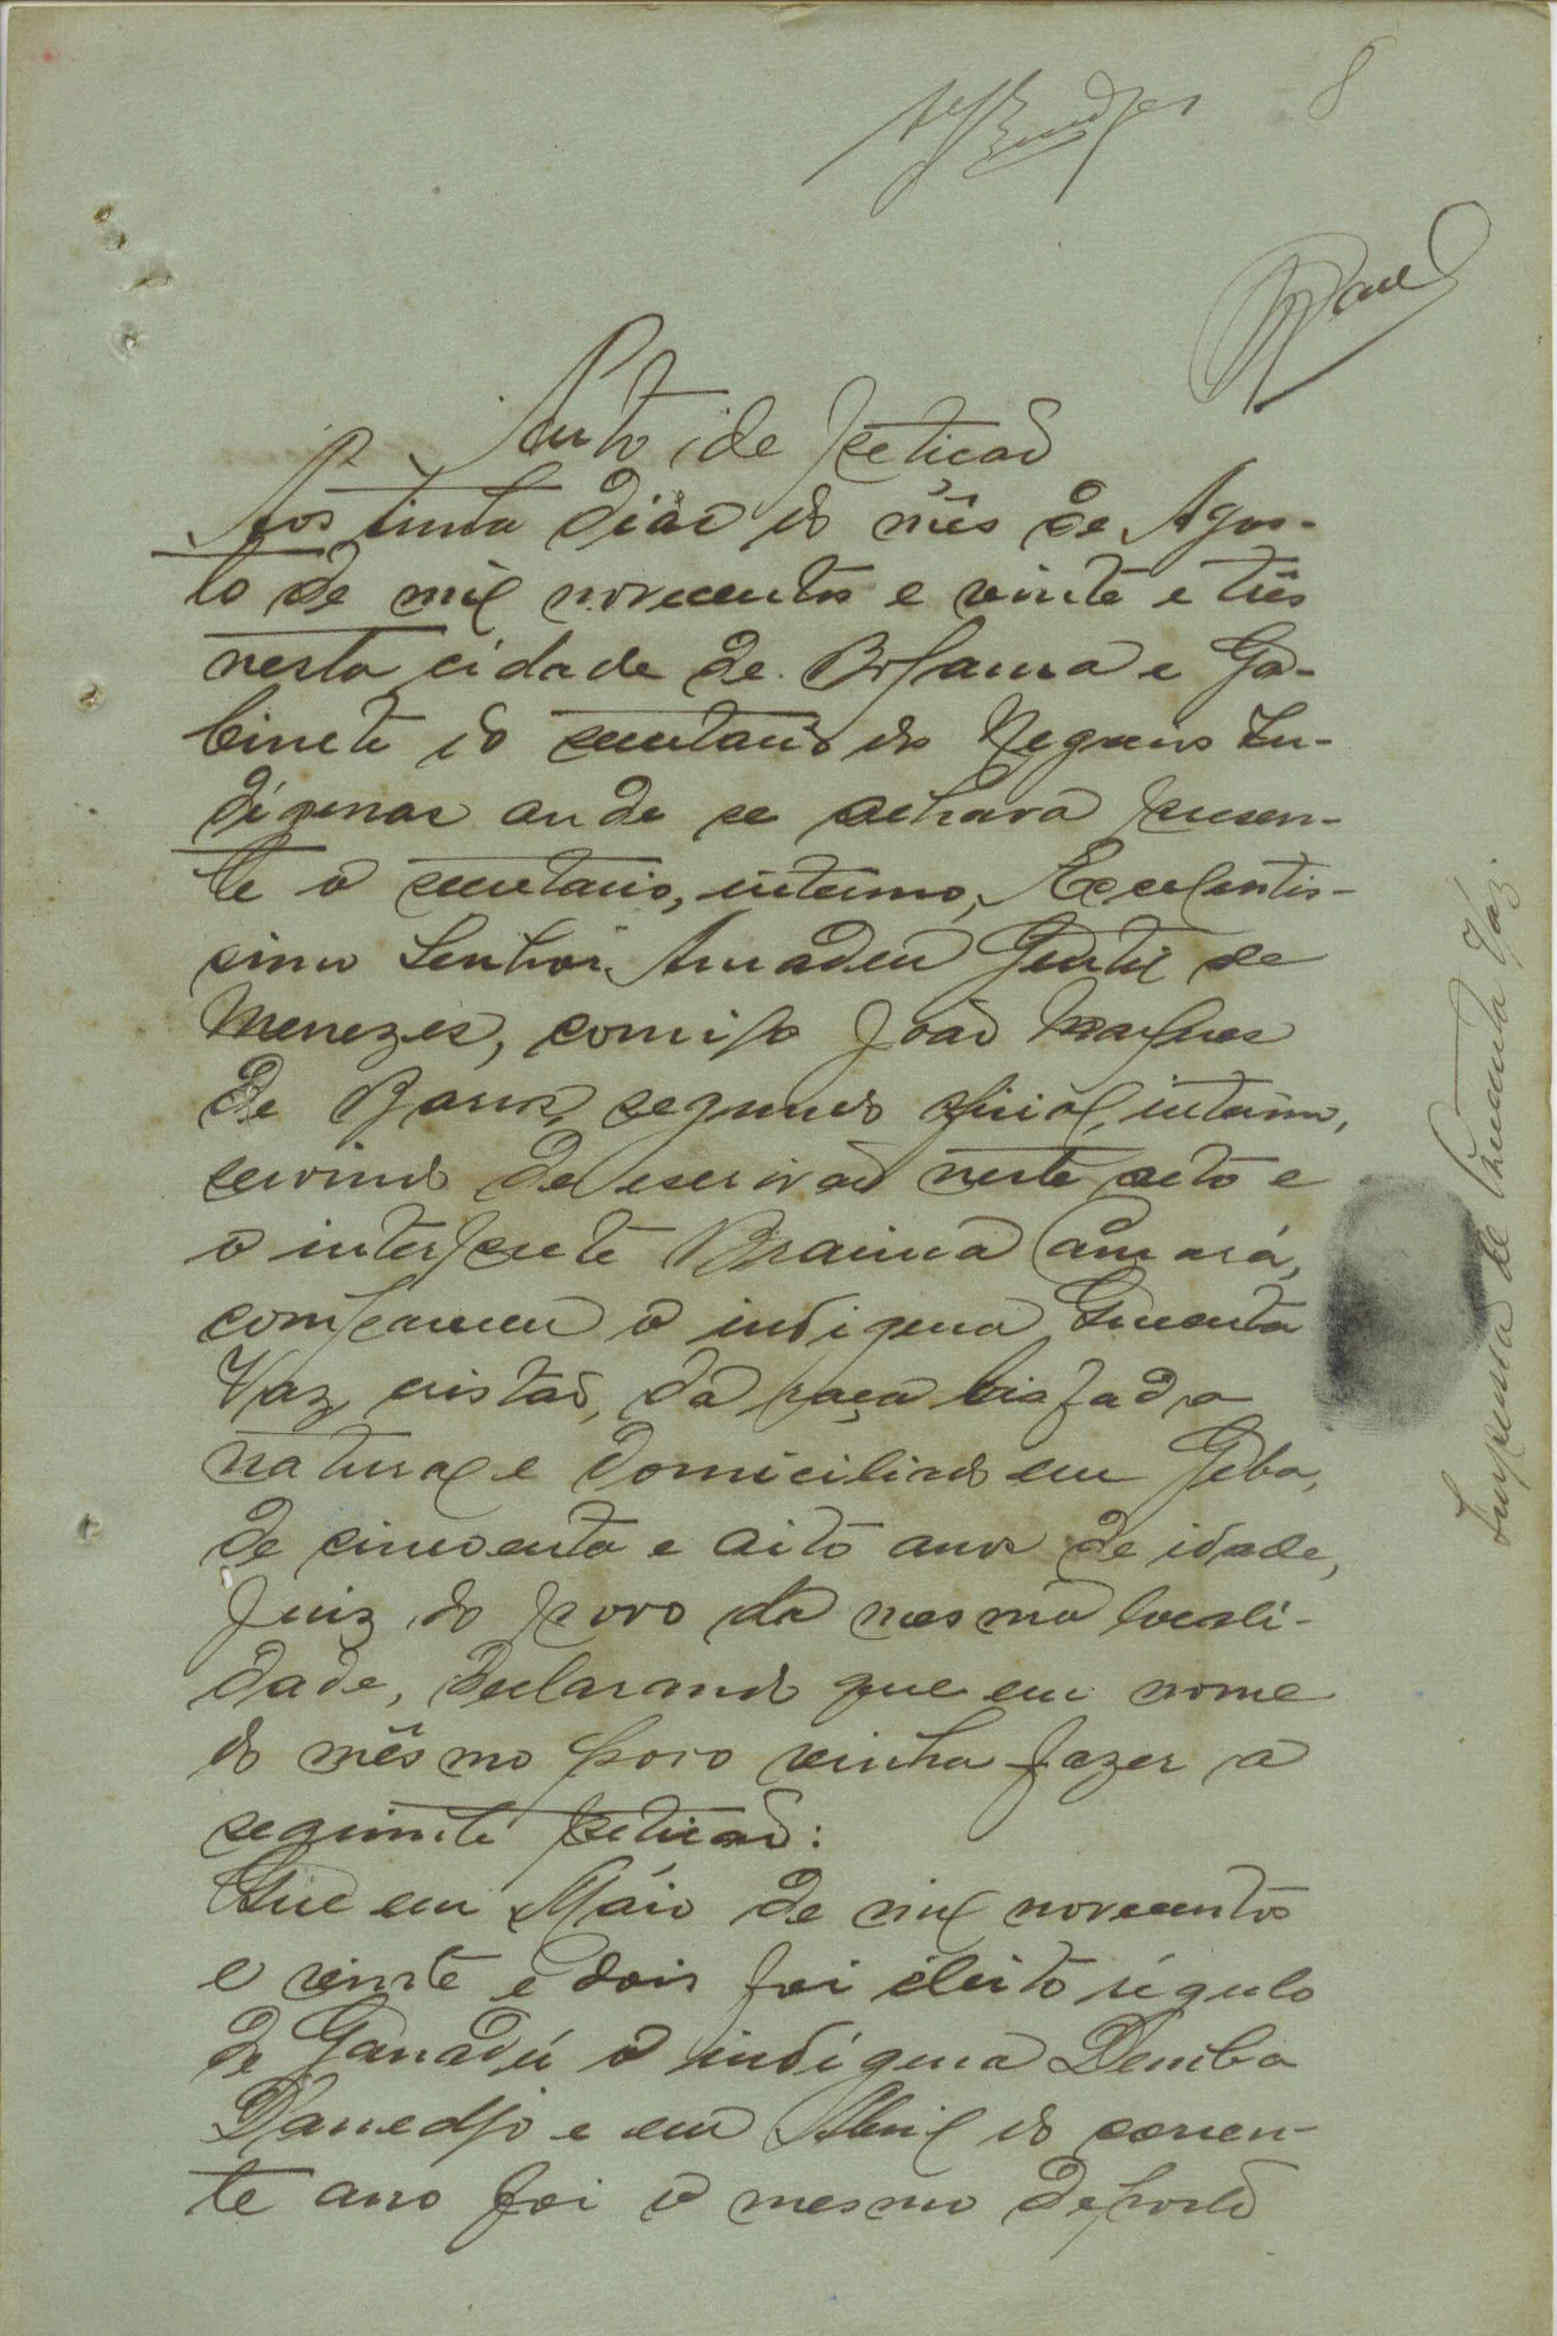 8
Auto de petição
Aos trinta dias do mês de Agos-
to de mil novecentos e vinte e três
nesta cidade de Bolama e Ga-
binete do secretario dos Negocios In-
dígenas onde se achava presen-
te o secretario, interino, Excelentis-
simo Senhor Amadeu Gentil de
Menezes, comigo João Marques
de Barros, segundo oficial, interino,
servindo de escrivão neste acto e
o interprete Braima Camará,
compareceu o indigena Quecuta
Vaz, cristão, da raça biafada
natural e domiciliado em Geba,
de cincoenta e oito anos de idade,
Juiz do povo da mesma locali-
dade, declarando que em nome
do mêsmo povo vinha fazer a
seguinte petição:
Que em Máio de mil novecentos
e vinte e dois foi eleito régulo
de Ganadú o indígena Demba
Danedjo e em Abril do corren-
te ano foi o mesmo deposto
Impressão de Quecuta Vaz